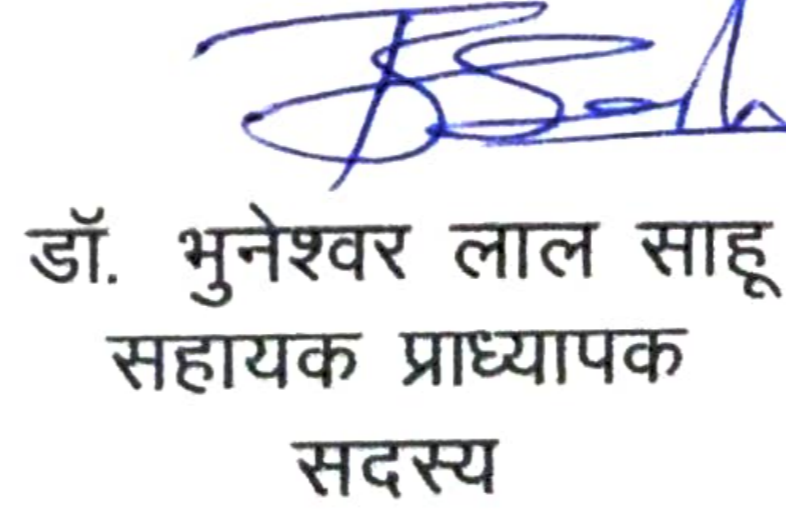 डॉ. भुनेश्वर लाल साहू
सहायक प्राध्यापक
सदस्य